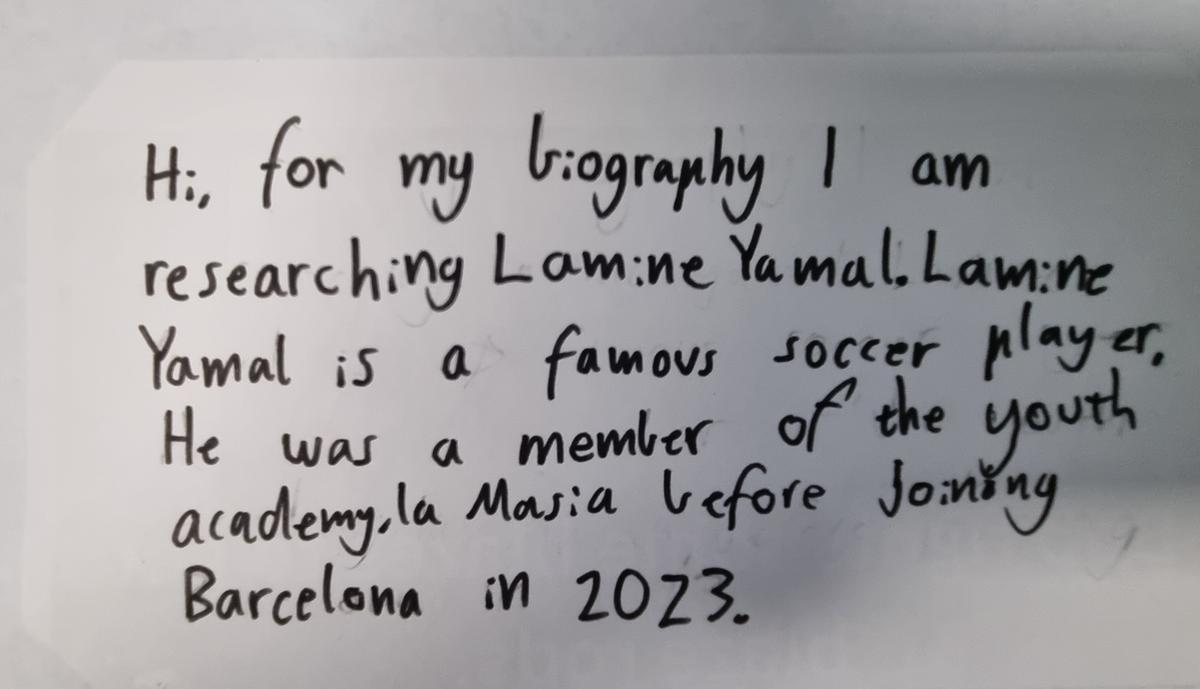 Hi, for my biography I am
researching Lamine Yamal. Lamine
Yamal is a famous soccer player.
He was a member of the youth
academy, la Masia before Joining
Barcelona in 2023.